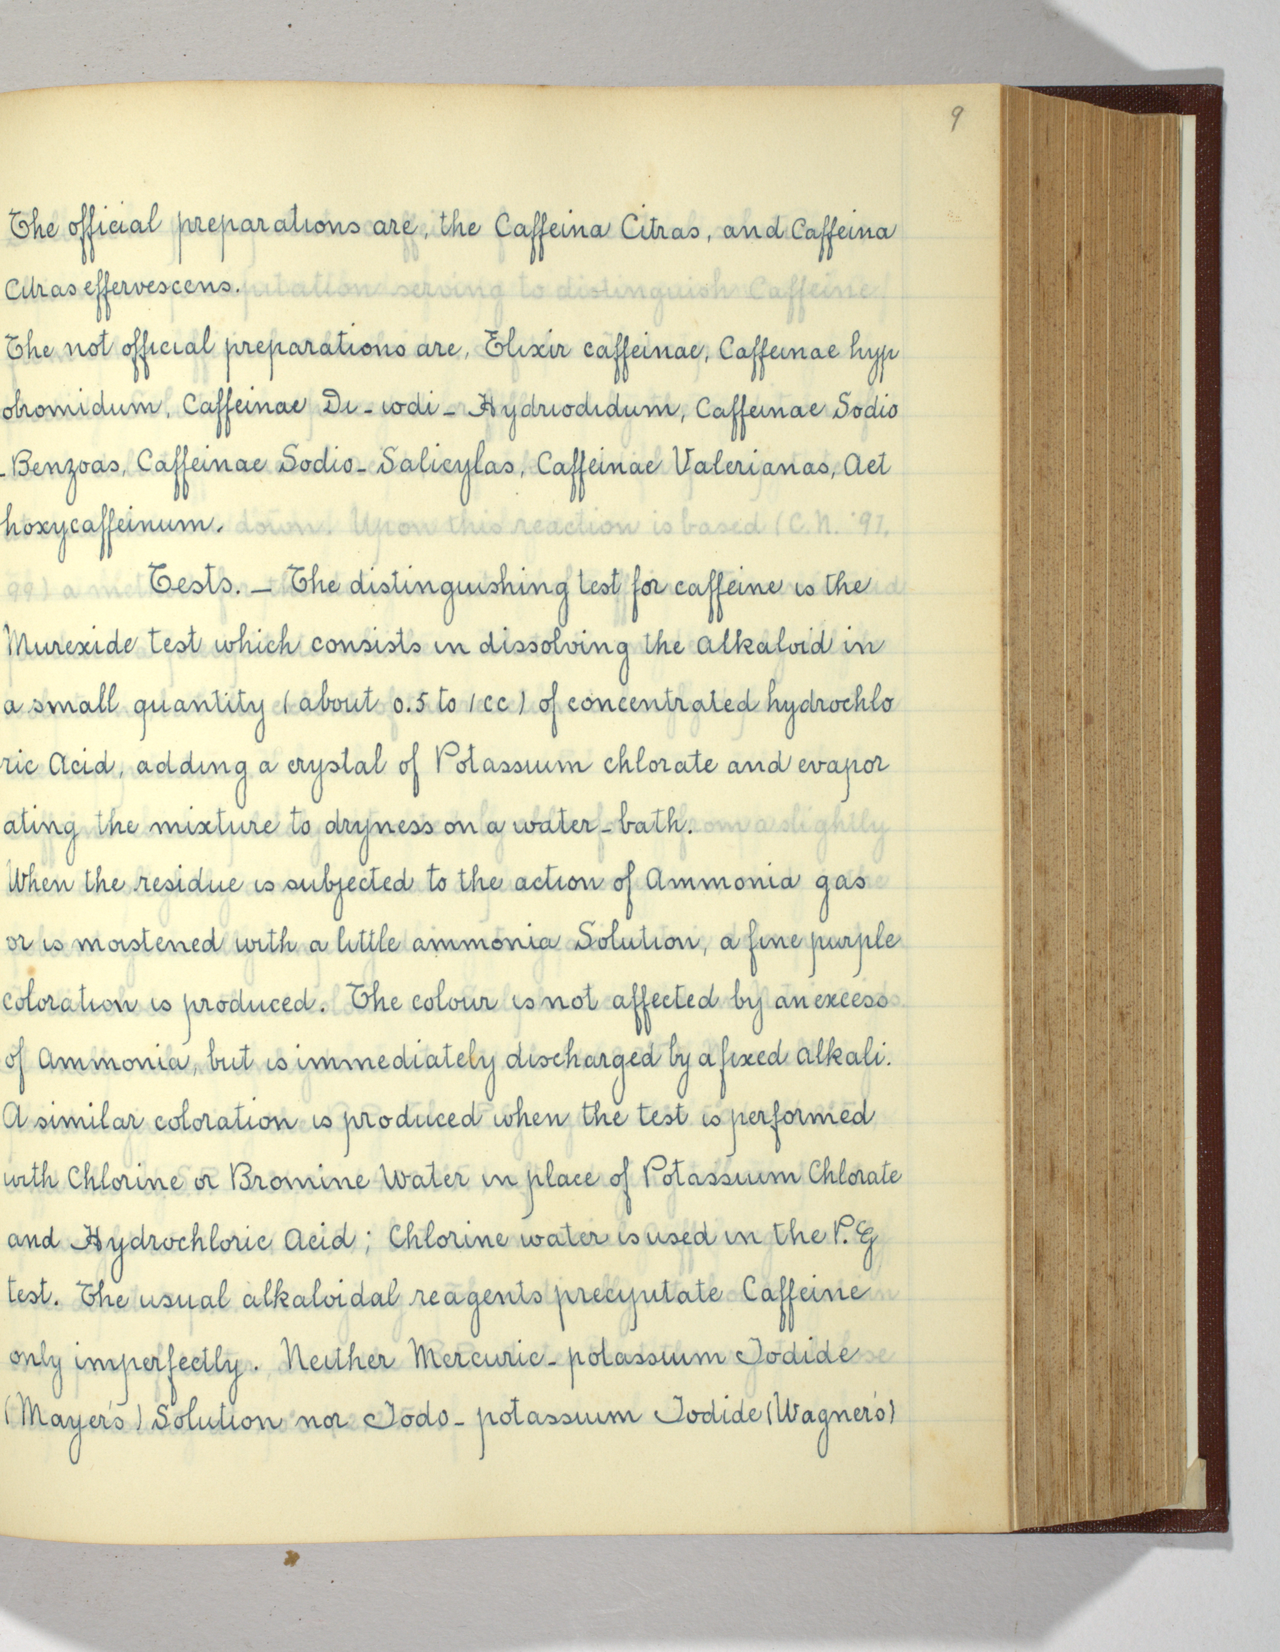 9
The official preparations are, the Caffeina Citras, and Caffeina
Citras effervescens.
The not official preparations are, Elixir caffeinae, Caffeinae hyp
obromidum, Caffeinae Di-iodi-Hydriodidum, Caffeinae Sodio
-Benzoas, Caffeinae Sodio-Salicylas, Caffeinae Valerianas, Aet
hoxycaffeinum.
Tests. — The distinguishing test for caffeine is the
Murexide test which consists in dissolving the alkaloid in
a small quantity (about 0.5 to 1cc) of concentrated hydrochlo
ric Acid, adding a crystal of Potassium chlorate and evapor
ating the mixture to dryness on a water-bath.
When the residue is subjected to the action of Ammonia gas
or is moistened with a little ammonia Solution, a fine purple
coloration is produced. The colour is not affected by an excess
of Ammonia, but is immediately discharged by a fixed alkali.
A similar coloration is produced when the test is performed
with Chlorine or Bromine Water in place of Potassium Chlorate
and Hydrochloric Acid; Chlorine water is used in the P.G
test. The usual alkaloidal reagents precyutate Caffeine
only imperfectly. Neither Mercuric-potassium Iodide
(Mayer's) Solution nor Iodo-potassium Iodide (Wagner's)